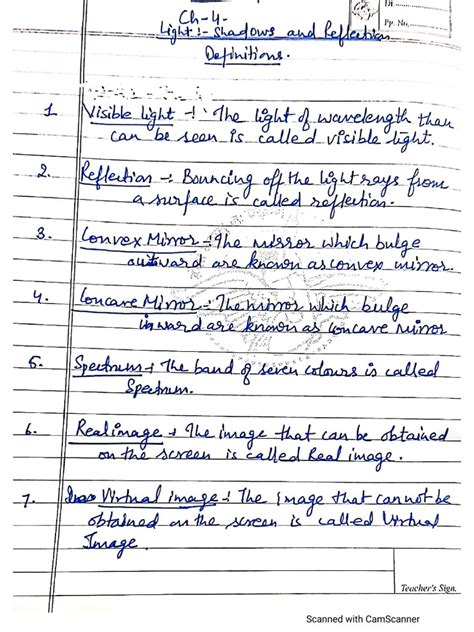 Dt.
Pp. No.
Ch-4-
Light :- Shadows and Reflection
Definitions.
1. Visible light -: The light of wavelength that
can be seen is called visible light.
2. Reflection -: Bouncing off the light rays from
a surface is called reflection.
3. Convex Mirror -: The mirror which bulge
outward are known as convex mirror.
4. Concave Mirror -: The mirror which bulge
inward are known as concave mirror
5. Spectrum -: The band of seven colours is called
Spectrum.
6. Real image -: The image that can be obtained
on the screen is called Real image.
7. Virtual image -: The image that cannot be
obtained on the screen is called Virtual
Image.
Teacher's Sign.
Scanned with CamScanner